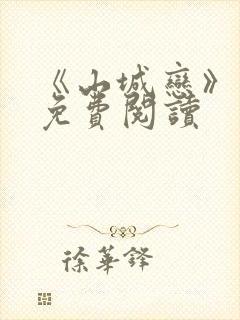 《山城戀》
免費閱讀
徐華鋒